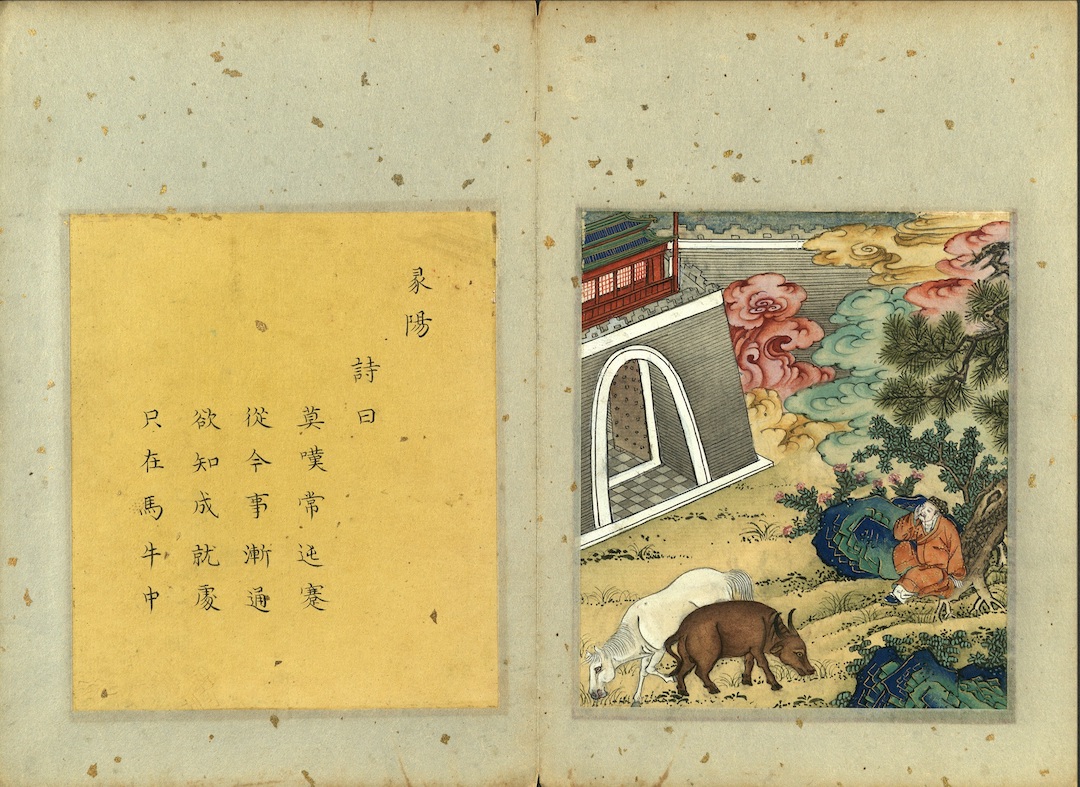 彖陽
詩曰
莫嘆常迍蹇
從今事漸通
欲知成就處
只在馬牛中